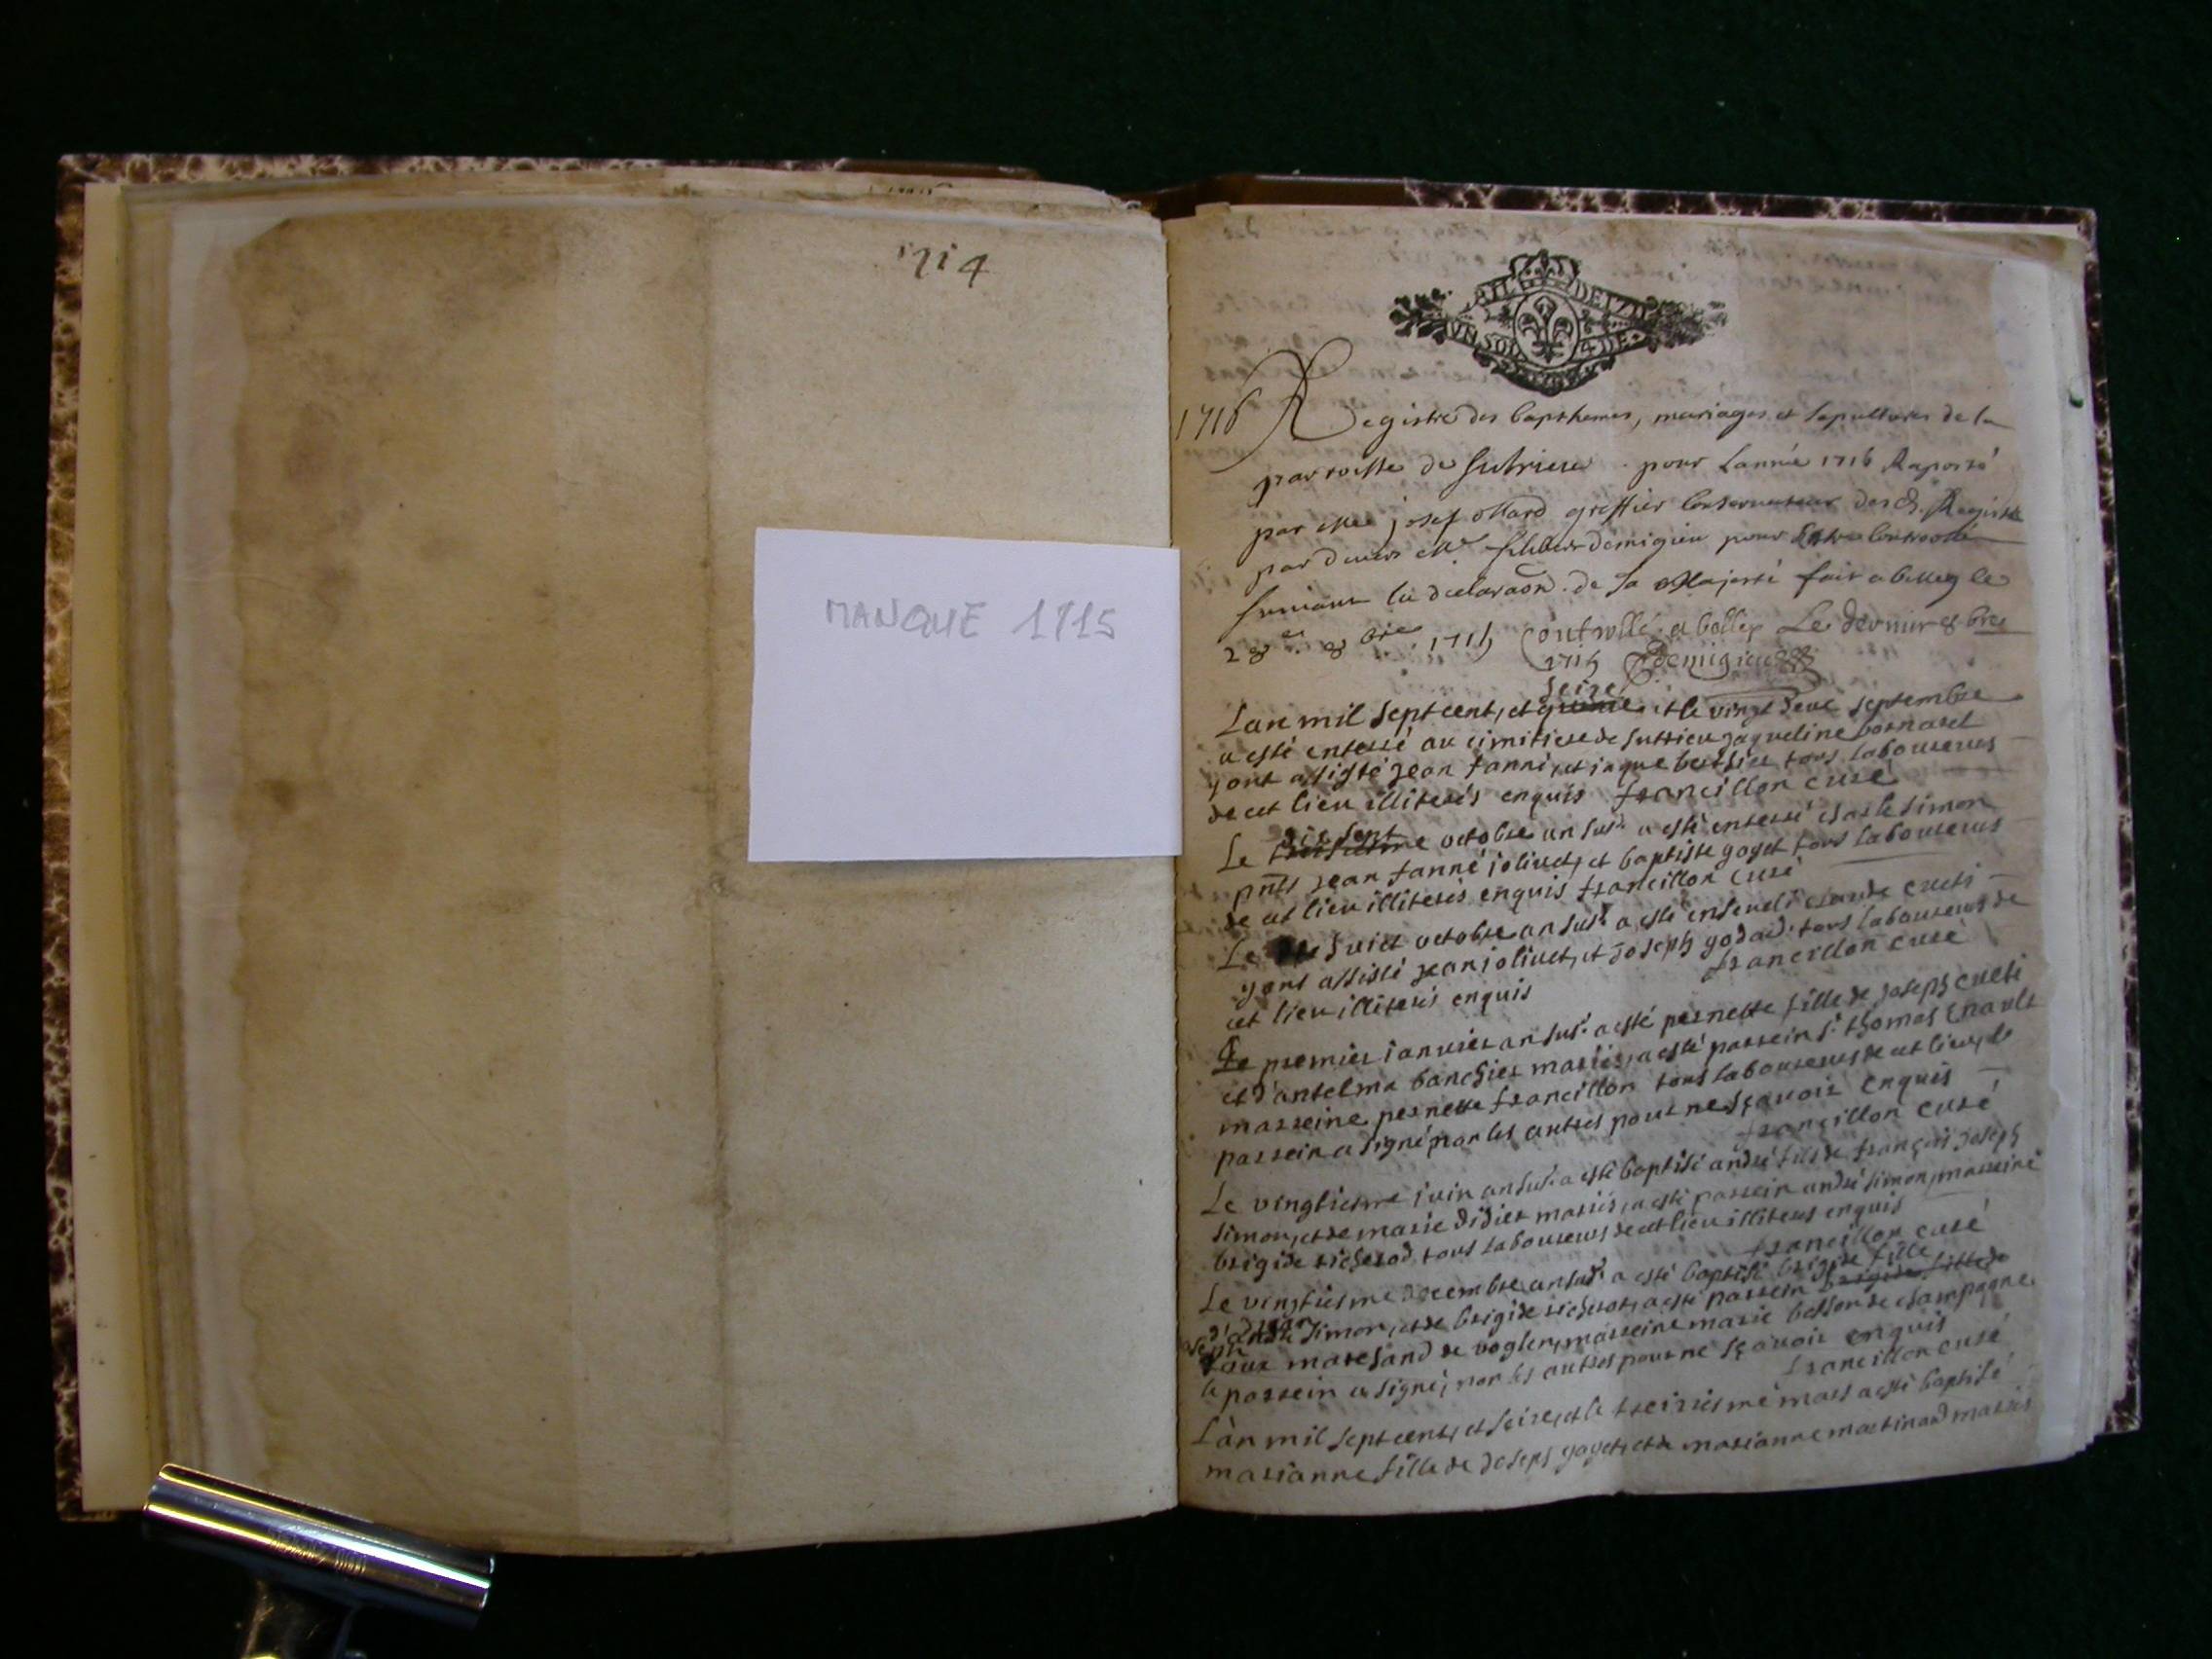 1714
MANQUE 1715
UN SOL 4 DE
1716 Registre des bapthemes, mariages et sepultures de la
parroisse de Sutrieu pour lannée 1716 Raporté
par Me josef greffier conservateur des d. Registre
par devers Me demigieu pour Estre controolé
suivant la declaraõn de sa Majesté fait a belley le
28e 8bre 1715 Controllé a belley Le dernier 8bre
1715 Demigieu
seize
Lan mil sept cent, et quinze et le vingt deus septembre
a esté enterré au cimitiere de suttrieu jaqueline bornarel
y ont assisté jean tanné, et jaque berthier tous laboureurs
de cet lieu illiterés enquis francillon curé
dix sept
Le octobre an sus. a esté enterré charle simon
pnts jean tanné jolivet, et baptiste goyet tous laboureurs
de cet lieu illiterés enquis francillon curé
Le huict octobre an sus. a esté enseveli claude cueti
y ont assisté jean jolivet, et joseph godard tous laboureurs de
cet lieu illiterés enquis francillon curé
Le premier janvier an sus. a esté pernette fille de joseph cueti
et d'antelma banchier mariés, a esté parrein s. thomas
marreine pernette francillon tous laboureurs de cet lieu, le
parrein a signé non les autres pour ne sçavoir enquis
francillon curé
Le vingtiesme juin an sus. a esté baptisé andré fils de françois joseph
simon, et de marie didier mariés, a esté parrein andré simon, marreine
brigide richerod tous laboureurs de cet lieu illiterés enquis
francillon curé
Le vingtiesme decembre an sus. a esté baptisé brigide fille
d'andré simon, et de brigide richerot, a esté parrein brigide fille de
marchand de voglen, marreine marie besson de champagne
le parrein a signé, non les autres pour ne sçavoir enquis
francillon curé
L'an mil sept cent, et seize, et le treiziesme mars a esté baptisé
marianne fille de joseph goyet, et de marianne martinand mariés